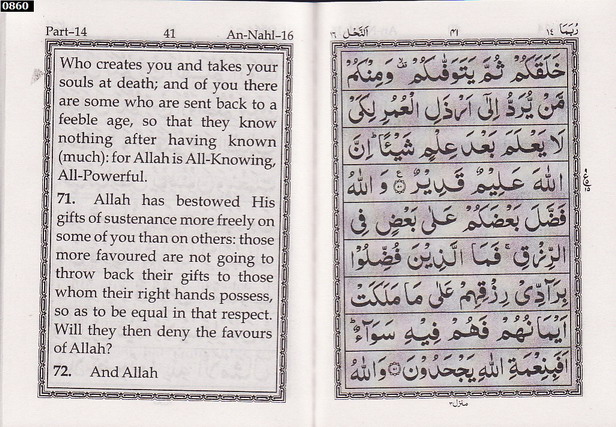 0860
Part–14 41 An-Nahl-16
Who creates you and takes your
souls at death; and of you there
are some who are sent back to a
feeble age, so that they know
nothing after having known
(much): for Allah is All-Knowing,
All-Powerful.
71. Allah has bestowed His
gifts of sustenance more freely on
some of you than on others: those
more favoured are not going to
throw back their gifts to those
whom their right hands possess,
so as to be equal in that respect.
Will they then deny the favours
of Allah?
72. And Allah
رُبَمَا ١٤ ٤١ اَلنَّحْل ١٦
خَلَقَكُمْ ثُمَّ يَتَوَفّٰىكُمْ وَمِنْكُمْ
مَّنْ يُّرَدُّ اِلٰٓى اَرْذَلِ الْعُمُرِ لِكَيْ
لَا يَعْلَمَ بَعْدَ عِلْمٍ شَيْـًٔا ؕ اِنَّ
اللّٰهَ عَلِيْمٌ قَدِيْرٌ ۝٧٠ وَاللّٰهُ
فَضَّلَ بَعْضَكُمْ عَلٰى بَعْضٍ فِى
الرِّزْقِ ۚ فَمَا الَّذِيْنَ فُضِّلُوْا
بِرَآدِّىْ رِزْقِهِمْ عَلٰى مَا مَلَكَتْ
اَيْمَانُهُمْ فَهُمْ فِيْهِ سَوَآءٌ ؕ
اَفَبِنِعْمَةِ اللّٰهِ يَجْحَدُوْنَ ۝٧١ وَاللّٰهُ
منزل ٣